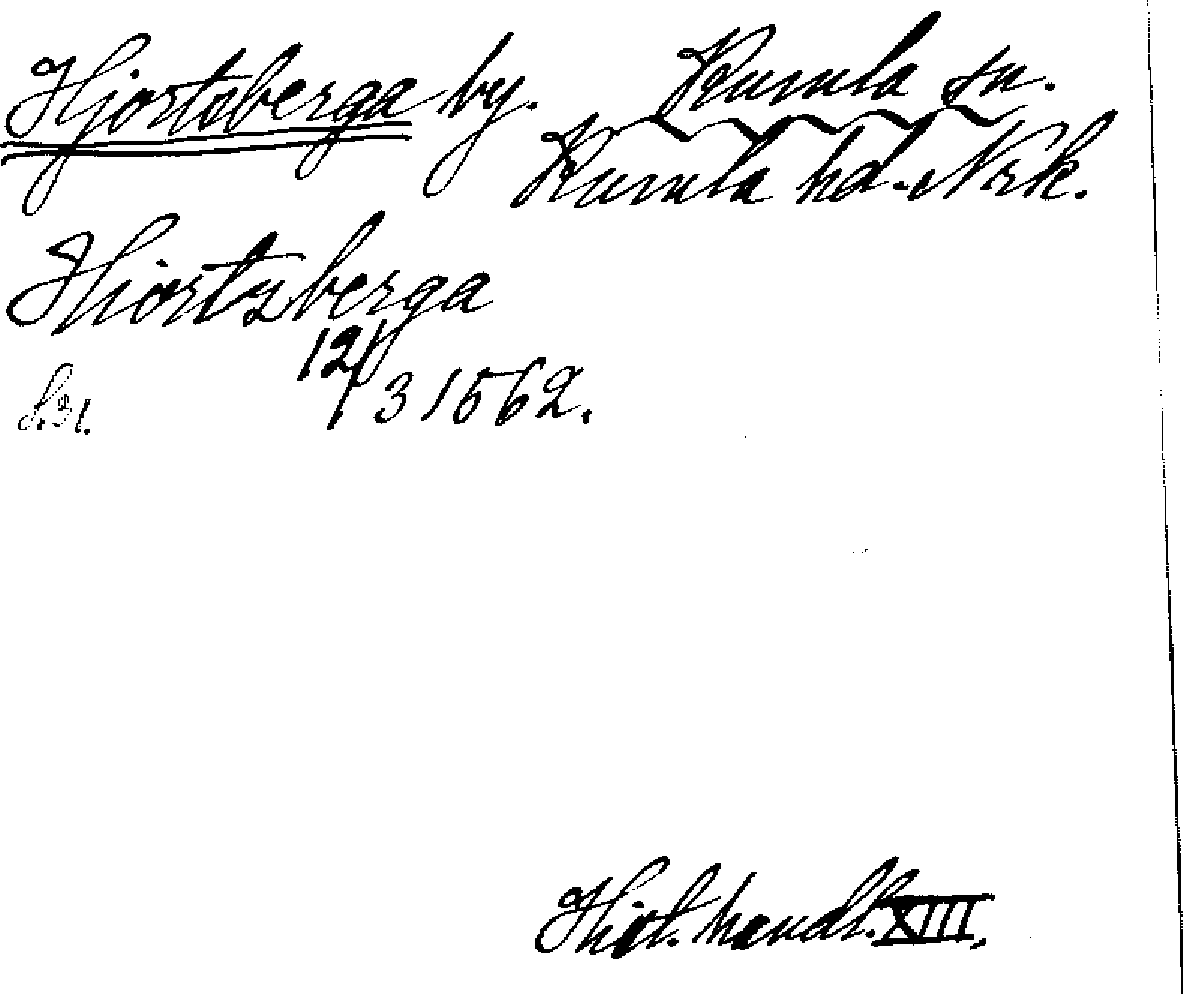 Hjortsberga by. Kumla sn.
Kumla hd. Nrk.
Hiortzberga
12/3 1562.
S. 31.
Hist. handl. XIII.